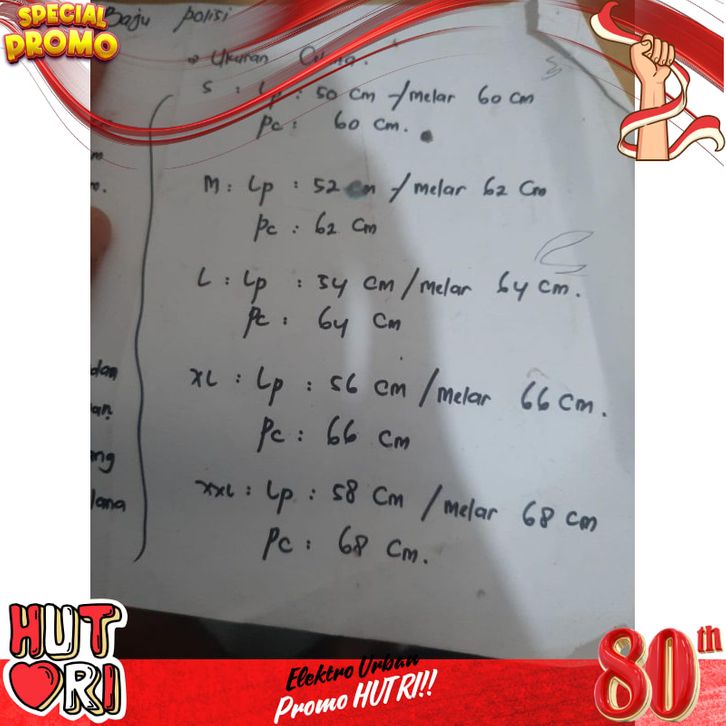 SPECIAL
PROMO
Baju polisi
Ukuran
S : Lp : 50 cm / melar 60 cm
Pc : 60 cm.
M : Lp : 52 cm / melar 62 cm
Pc : 62 cm
L : Lp : 54 cm / melar 64 cm.
Pc : 64 cm
XL : Lp : 56 cm / melar 66 cm.
Pc : 66 cm
XXL : Lp : 58 cm / melar 68 cm
Pc : 68 cm.
dan
an.
ng
lana
HUT
RI
Elektro Urban
Promo HUT RI!!
80th